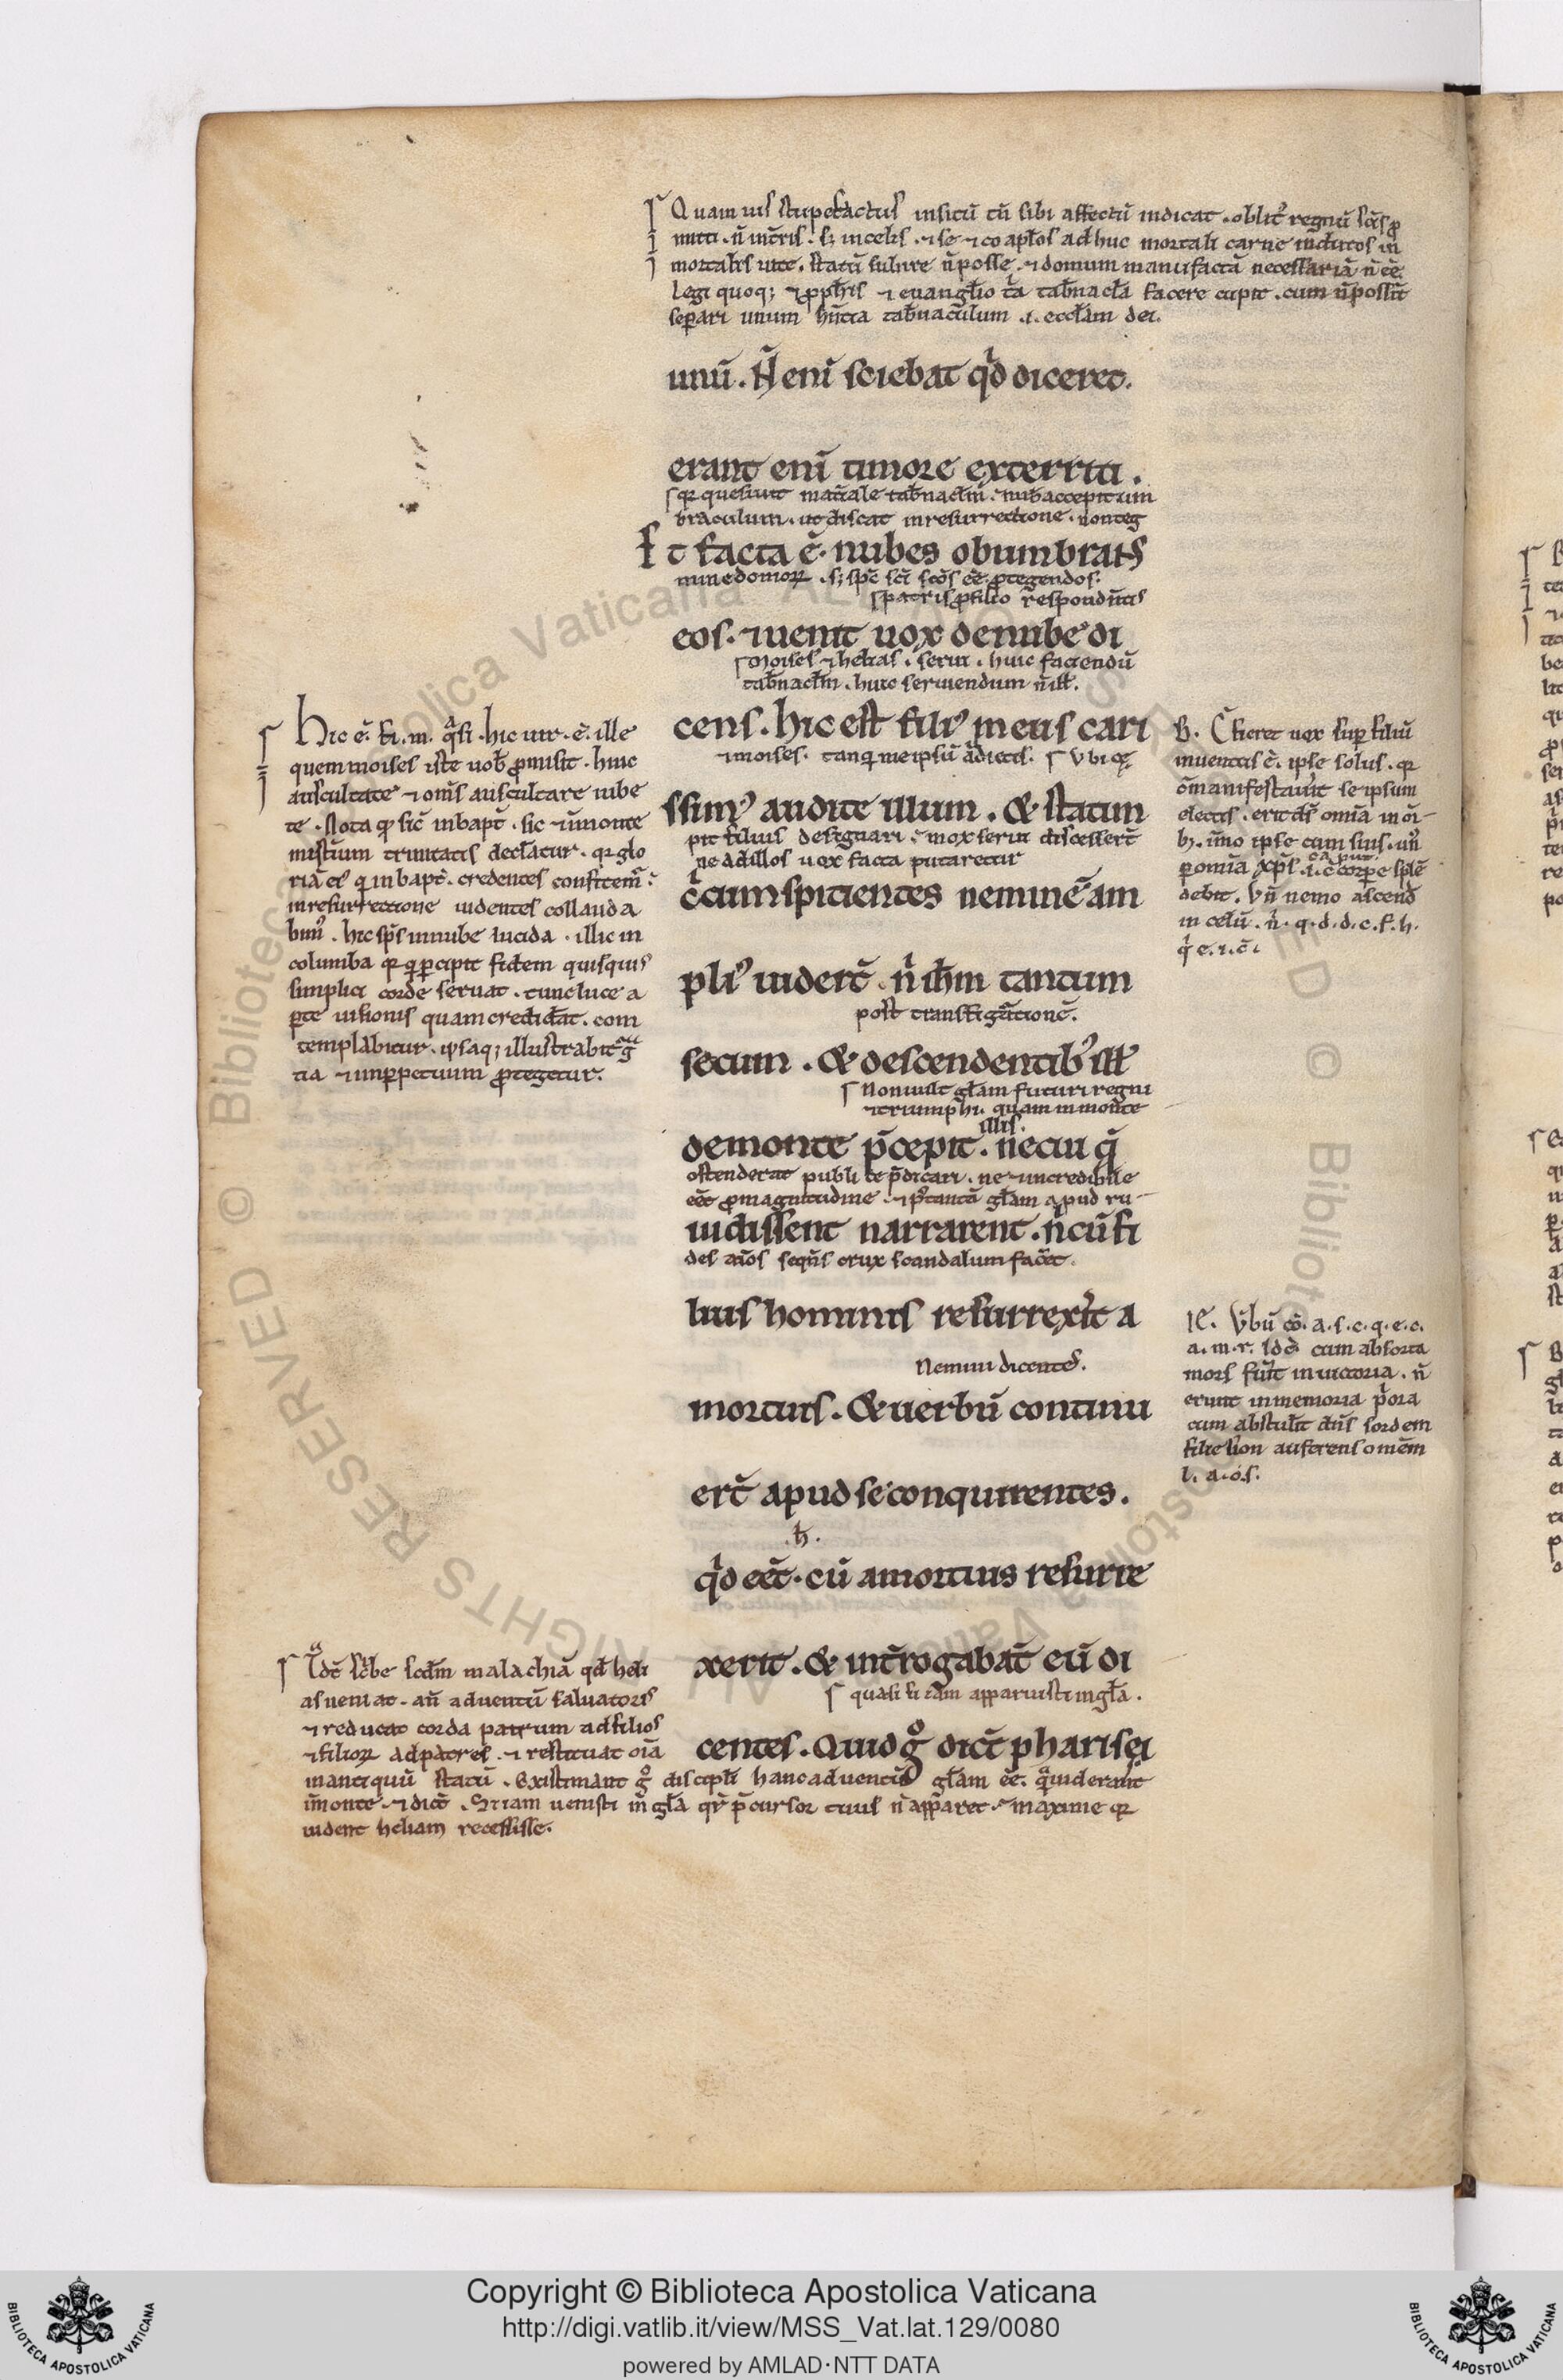 Quamuis stupefactus insitū tn̄ sibi affectū indicat . oblit᷒ regnū sc̄is ꝓ
mitti . n̄ int̄ris . sꝫ in celis . ⁊ se ⁊ coapl̄os adhuc mortali carne indutos in
mortalis uite . statū subire n̄ posse . ⁊ domum manufactā necessariā n̄ ēē
Legi quoqꝫ ⁊ ꝓph̄is ⁊ euangl̄io t̄a tab̄nacl̄a facere cupit . cum n̄ possīt
seꝑari unum hn̄tia tab̄naculum .i. eccl̄am dei.
unū . N̄ eni̅ sciebat qͥd diceret.
erant eni̅ timore exterriti .
qꝛ quesiuit mat̄iale tab̄nacl̄m . nub̄ accepit um
braculum . ut discat in resurrectione . non teg
Et facta ē . nubes obumbrans
mine domoꝝ . sꝫ sp̄c sc̄i sc̄os ēē ꝓtegendos.
patris ꝓ filio respondn̄tis
eos . ⁊ uenit uox de nube di
Moises ⁊ helias . serui . huic faciendū
tab̄nacl̄m . huic seruiendum n̄ ill̄.
cens . hic est fili᷒ meus cari
⁊ moises . tanqͣ me ipsū audietis . Vbi cę
ssim᷒ audite illum . & statim
pit filius designari . mox serui discessert̄
ne ad illos uox facta putaretur
c̄cumspicientes neminē am
pli᷒ uidert̄ . n̄ ih̄m tantum
post transfigͣtionē .
secum . & descendentib᷒ ill̄
Non uult gl̄am futuri regni
⁊ triumphi . quam in monte
illis.
de monte p̄cepit . ne cui q̄
ostenderat publice p̄dicari . ne ⁊ incredibile
ēēt ꝓ magnitudine . ⁊ p᷒ tantā gl̄am apud ru
uidissent narrarent . n̄ cū fi
des aīos seqn̄s crux scandalum fac̄et .
lius hominis resurrexit a
Nemini dicentes .
mortuis . & uerbū continu
ert̄ apud se conquirentes .
.h̄.
qͥd ēēt . cū a mortuis resurre
xerit . & int̄rogabāt eū di
quasi si iam apparuisti in gl̄a .
centes . Quid gͦ dic̄t pharisęi
Hic ē . fi . m . qͣsi . hic uir . ē . ille
quem moises iste uob̄ ꝓmisit . hunc
auscultate ⁊ om̄s auscultare iube
te . Nota qꝫ sic̄ in bapt̄ . sic ⁊ in monte
mist̄ium trinitatis declāatur . qꝛ glo
riā ei᷒ qͣ in bapt̄ . credentes confitem̄ .
in resurrectione uidentes collauda
bim᷒ . hic sp̄s in nube lucida . illic in
columba qꝛ qͥ ꝑcipit fidem quisquis
simplici corde seruat . tunc luce a
ꝑte uisionis quam credidat . com
templabitur . ipsaqꝫ illustrabit᷒ gͣ
tia ⁊ in ꝑpetuum ꝓtegetur.
B. C̄ fieret uox suꝑ filiū
inuentus ē . ipse solus . qꝛ
cū manifestau᷒it se ipsum
electis . erit ds̄ omia̅ in oi̅
bꝫ . im̄o ipse cum suis . un᷒
caput
ꝑ omia̅ xp̄s .i. c̄ corꝑe splē
debit . Vn̄ nemo ascend
in celū . n̄ . q . d . d . c . f . h .
qͥ e . i . c̄ .
IE. V̄bū cō . a . s . c . q . e . c .
a . m . r . Id ē cum absorta
mors fu᷒it in uictoria . n̄
erunt in memoria p̄ora
cum abstulit dn̄s sordem
filie sion auferens omēm
l . a . o . s .
Tͣdt̄ sc̄be sc̄dm malachiā qd̄ heli
as ueniat . an̄ aduentū saluatoris
⁊ reducat corda patrum ad filios
⁊ filioꝝ ad patres . ⁊ restituat oi̅a
in antiquū statū . Existimant gͦ discipl̄i hanc aduentū gl̄am ēē . qͣ uiderant
in monte ⁊ dic̄t . Si iam uenisti in gl̄a qͬ p̄cursor tuus n̄ apparet . maxime qꝛ
uident heliam recessisse .
Copyright © Biblioteca Apostolica Vaticana
http://digi.vatlib.it/view/MSS_Vat.lat.129/0080
powered by AMLAD·NTT DATA
BIBLIOTECA APOSTOLICA VATICANA
BIBLIOTECA APOSTOLICA VATICANA